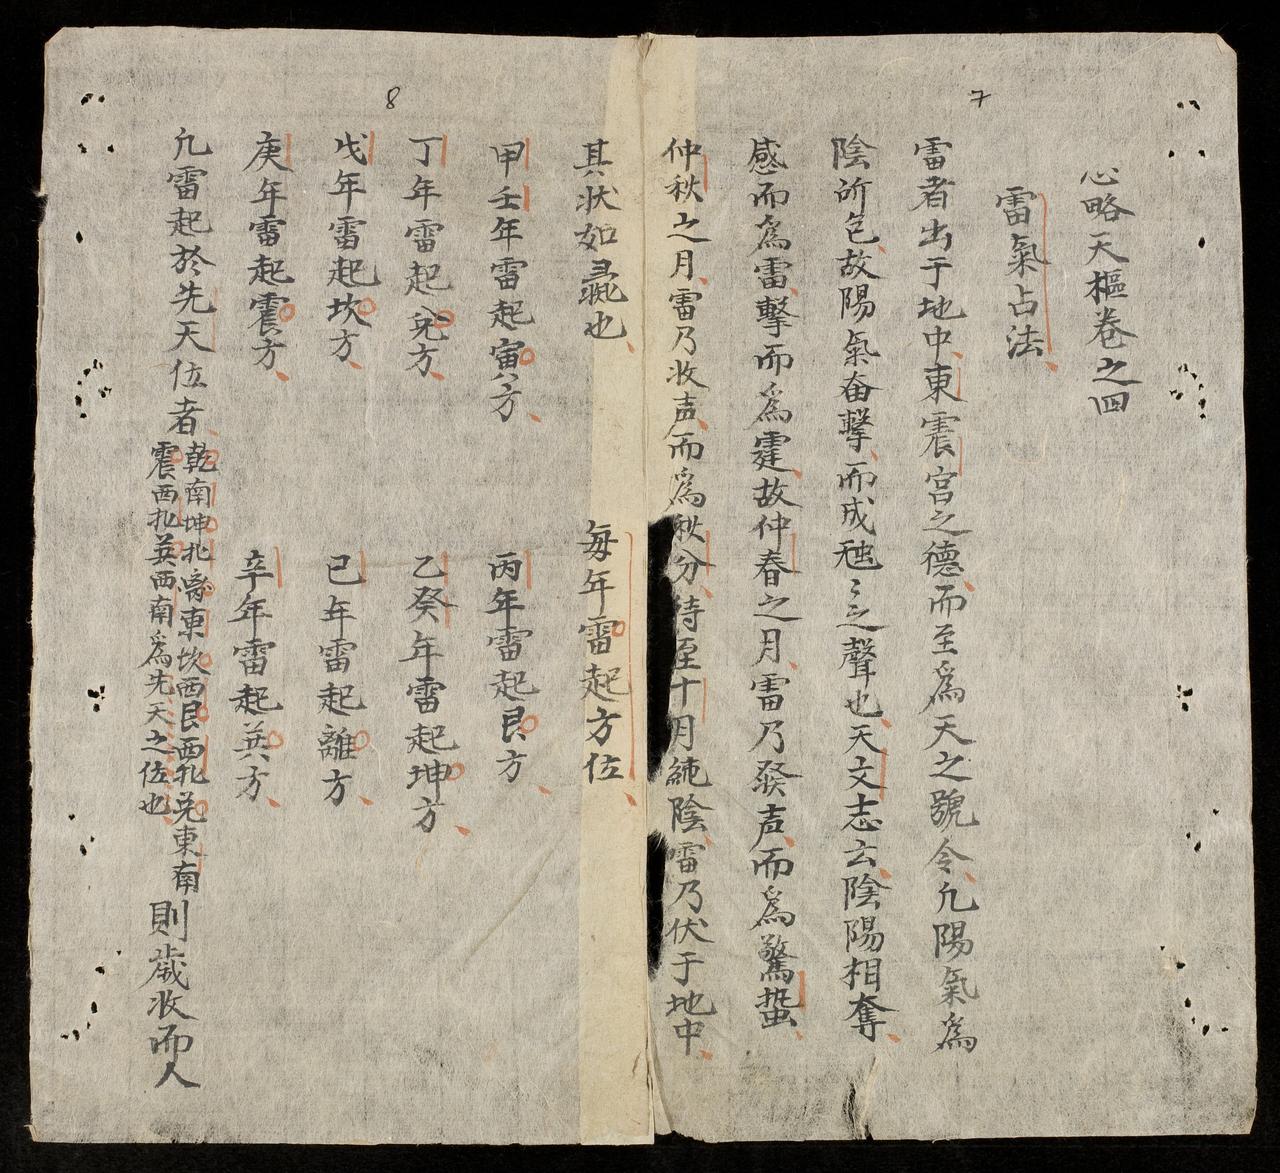 7
心略天樞卷之四
雷氣占法
雷者出于地中東震宮之德而至爲天之號令凢陽氣爲
陰所包故陽氣奋擊而成䖝〻之聲也天文志云陰陽相奪
感而爲雷擊而爲霆故仲春之月雷乃發声而爲驚蟄
仲秋之月雷乃收声而爲秋分待至十月純陰雷乃伏于地中
8
其状如彘也 每年雷起方位
甲壬年雷起寅方 丙年雷起艮方
丁年雷起兌方 乙癸年雷起坤方
戊年雷起坎方 己年雷起離方
庚年雷起震方 辛年雷起巽方
凢雷起於先天位者
乾南坤北离東坎西艮西北兌東南
震西北巽西南爲先天之位也
則歲收而人